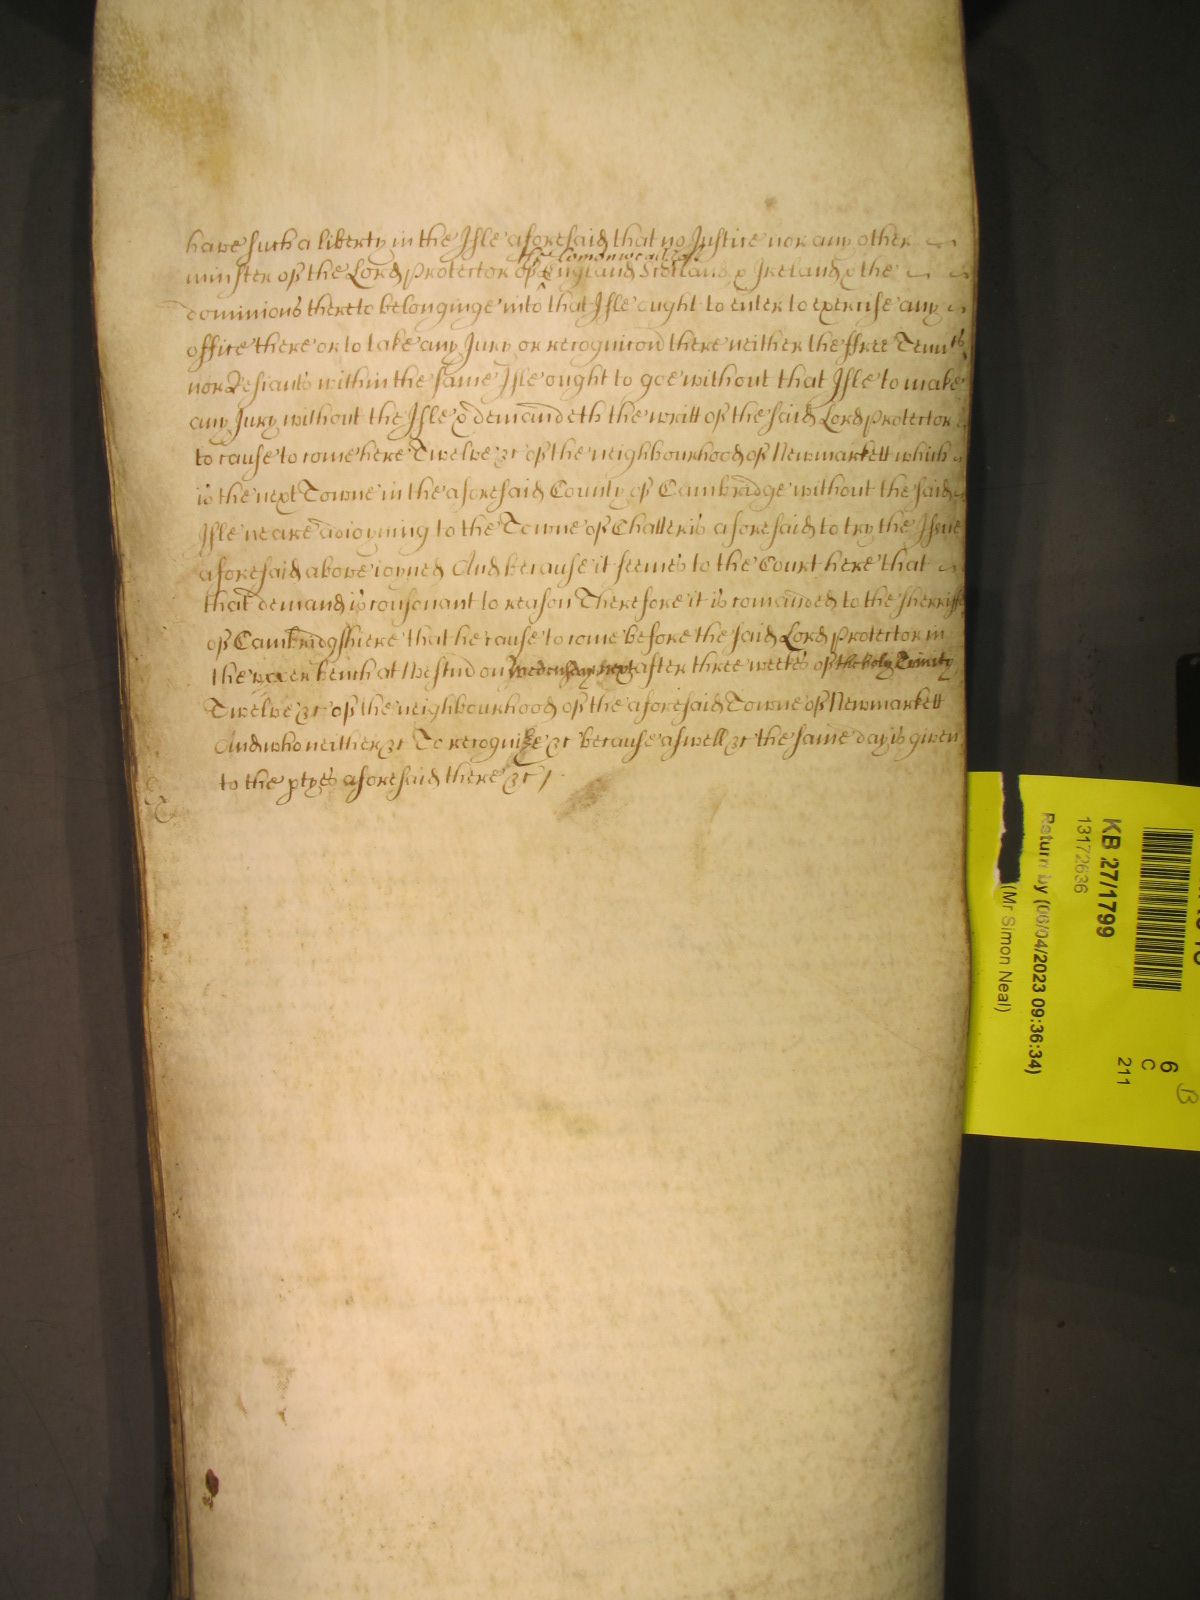 have such a liberty in the Isle aforesaid that no Justice nor any other
the Comonwealth of
minister of the Lord protector of England Scotland & Ireland & the
dominions thereto belonginge into that Isle ought to enter to exercise any
office there or to take any Jury or recognicon there neither the ffree Tenntˢ
nor Resiants within the same Isle ought to goe without that Isle to make
any Jury without the Isle & demandeth the writt of the said Lord protector
to cause to come here Twelve &c of the neighbourhood of Newmarkett which
is the next Towne in the aforesaid County of Cambridge without the said
Isle neare adioyning to the Towne of Chatteris aforesaid to try the Issue
aforesaid above ioyned And because it seemes to the Court here that
that demand is consonant to reason Therefore it is comanded to the sherriffe
of Cambridgshiere that he cause to come before the said Lord protector in
the vpper bench at Westmr on Wedensday next after three weekes of the holy Trinity
Twelve &c of the neighbourhood of the aforesaid Towne of Newmarkett
And who neither &c To recognize &c because aswell &c the same day is given
to the ptyes aforesaid there &c /.
KB 27/1799
13172636
Return by (06/04/2023 09:36:34)
(Mr Simon Neal)
6
C
211
B